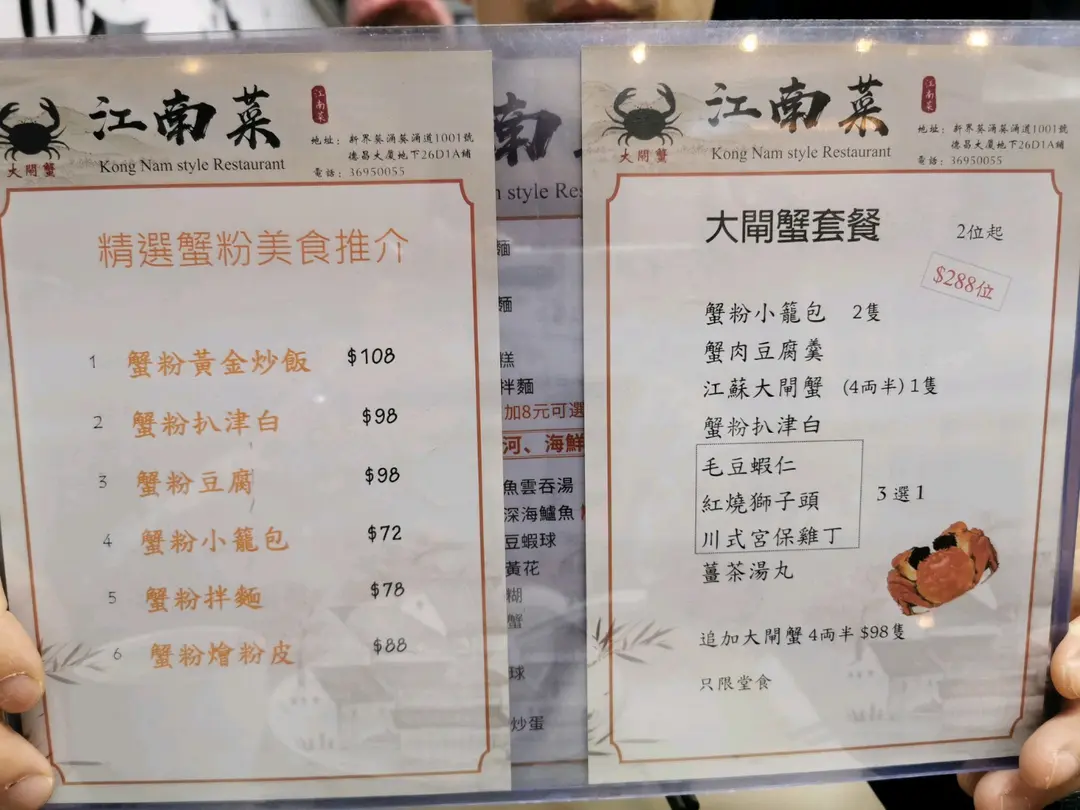 江南菜
江南菜
Kong Nam style Restaurant
大閘蟹
地址：新界葵涌葵涌道1001號
德昌大廈地下26D1A鋪
電話：36950055
精選蟹粉美食推介
1 蟹粉黃金炒飯 $108
2 蟹粉扒津白 $98
3 蟹粉豆腐 $98
4 蟹粉小籠包 $72
5 蟹粉拌麵 $78
6 蟹粉燴粉皮 $88
南
style Res
麵
麵
糕
拌麵
加8元可選
河、海鮮
魚雲吞湯
深海鱸魚
豆蝦球
黃花
糊
蟹
球
炒蛋
江南菜
江南菜
Kong Nam style Restaurant
大閘蟹
地址：新界葵涌葵涌道1001號
德昌大廈地下26D1A鋪
電話：36950055
大閘蟹套餐 2位起
$288位
蟹粉小籠包 2隻
蟹肉豆腐羹
江蘇大閘蟹 (4両半) 1隻
蟹粉扒津白
毛豆蝦仁
紅燒獅子頭 3選1
川式宮保雞丁
薑茶湯丸
追加大閘蟹 4両半 $98隻
只限堂食